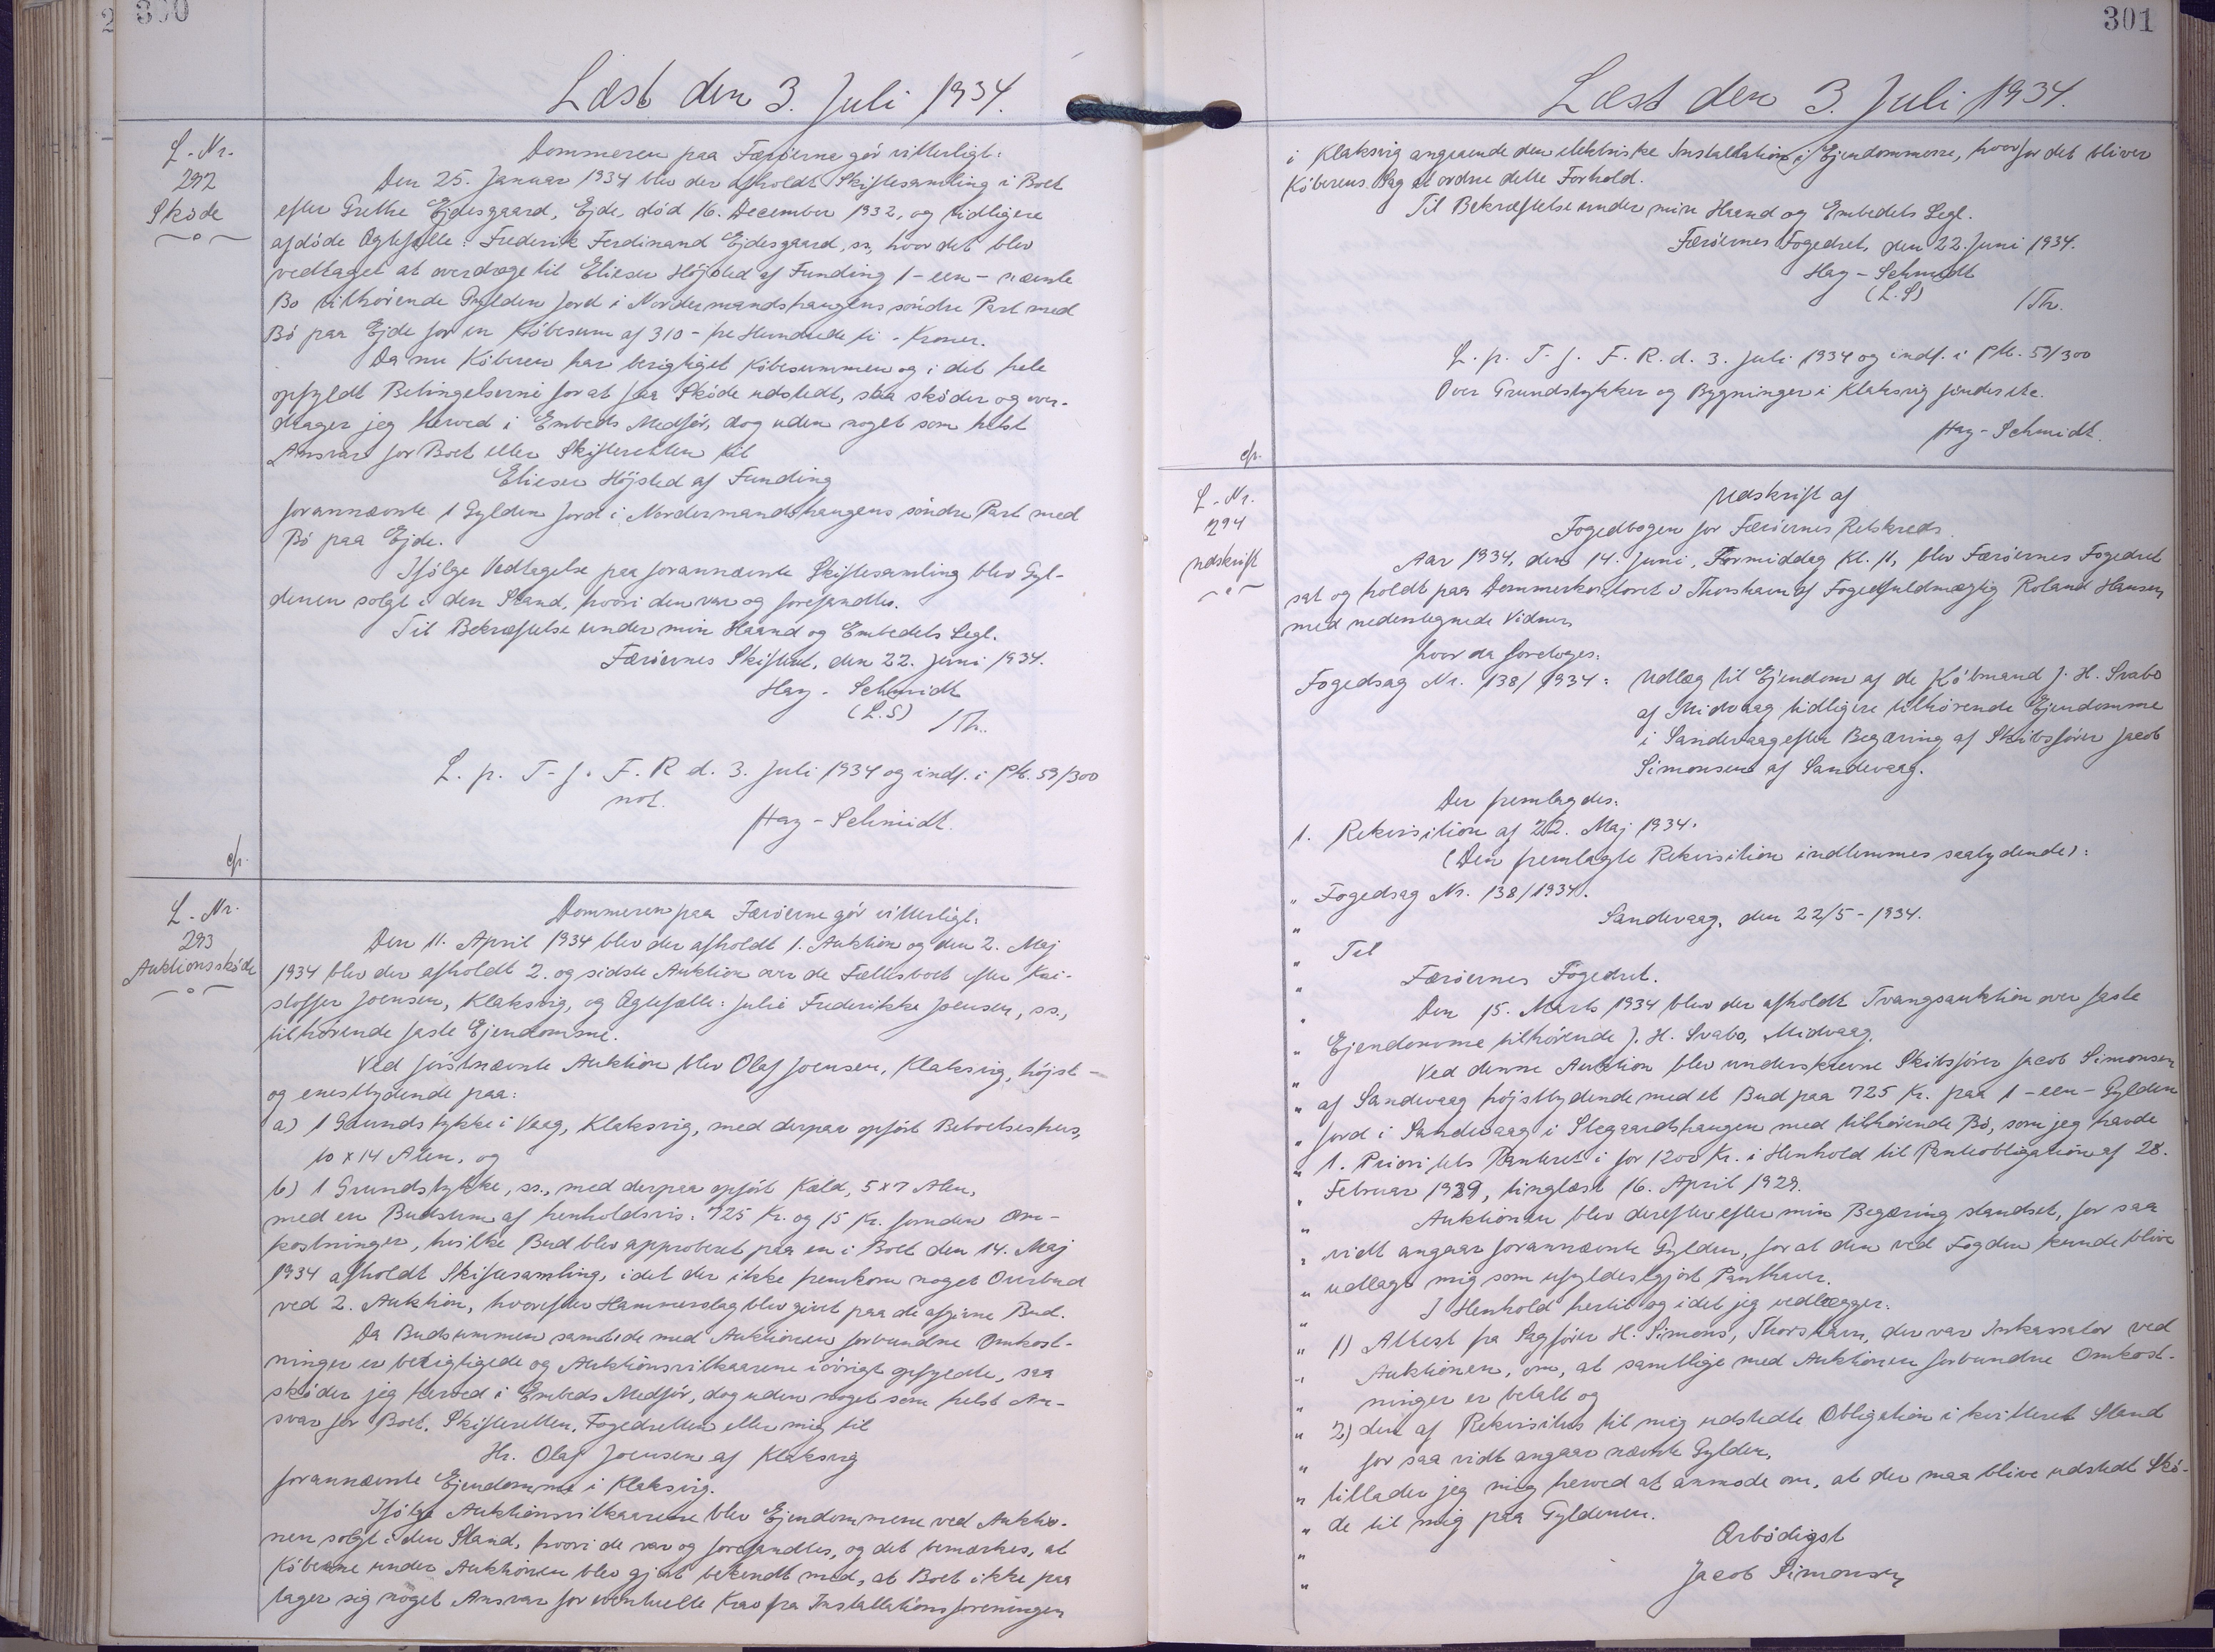 300
Læst den 3. Juli 1934.
L.-Nr.
292
Sköde
Dommeren paa Færöerne gör vitterligt:
Den 25. Januar 1934 blev der afholdt Skiftesamling i Boet
efter Grethe Ejdesgaard, Ejde, död 16. December 1932, og tidligere
afdöde Ægtefælle: Frederik Ferdinand Ejdesgaard, ss., hvor det blev
vedtaget at overdrage til Elieser Höjsted af Funding 1 - een - nævnte
Bo tilhörende Gylden Jord i Nordermandshaugens söndre Part med
Bö paa Ejde for en Köbesum af 310 - tre Hundrede ti - Kroner.
Da nu Köberen har berigtiget Köbesummen og i det hele
opfyldt Betingelserne for at faa Sköde udstedt, saa sköder og over-
drager jeg herved i Embeds Medför, dog uden noget som helst
Ansvar for Boet eller Skifteretten til
Elieser Höjsted af Funding
forannævnte 1 Gylden Jord i Nordermandshaugens söndre Part med
Bö paa Ejde.
Ifölge Vedtagelse paa forannævnte Skiftesamling blev Gyl-
denen solgt i den Stand, hvori den var og forefandtes.
Til Bekræftelse under min Haand og Embedets Segl.
Færöernes Skifteret, den 22. Juni 1934.
Hay-Schmidt
(L.S)
/Th.
L. p. T-g. F. R d. 3. Juli 1934 og indf. i Pk. 59/300
not.
Hay-Schmidt.
cfr.
L.-Nr.
293
Auktionssköde
Dommeren paa Færöerne gör vitterligt:
Den 11. April 1934 blev der afholdt 1. Auktion og den 2. Maj
1934 blev der afholdt 2. og sidste Auktion over de Fællesboet efter Kri-
stoffer Joensen, Klaksvig, og Ægtefælle: Julie Frederikke Joensen, ss.,
tilhörende faste Ejendomme.
Ved förstnævnte Auktion blev Olaf Joensen, Klaksvig, höjst-
og enestbydende paa:
a) 1 Grundstykke i Vaag, Klaksvig, med derpaa opfört Beboelseshus,
10 x 14 Alen, og
b) 1 Grundstykke, ss., med derpaa opfört Kæld, 5 x 7 Alen,
med en Budsum af henholdsvis: 725 Kr. og 15 Kr. foruden Om-
kostninger, hvilke Bud blev approberet paa en i Boet den 14. Maj
1934 afholdt Skiftesamling, idet der ikke fremkom noget Overbud
ved 2. Auktion, hvorefter Hammerslag blev givet paa de afgivne Bud.
Da Budsummen samt de med Auktionen forbundne Omkost-
ninger er berigtigede og Auktionsvilkaarene iövrigt opfyldte, saa
sköder jeg herved i Embeds Medför, dog uden noget som helst An-
svar for Boet, Skifteretten, Fogedretten eller mig til
Hr. Olaf Joensen af Klaksvig
forannævnte Ejendomme i Klaksvig.
Ifölge Auktionsvilkaarene blev Ejendommene ved Auktio-
nen solgt i den Stand, hvori de var og forefandtes, og det bemærkes, at
Köberne under Auktionen blev gjort bekendt med, at Boet ikke paa
tager sig noget Ansvar for eventuelle Krav fra Installationsforeningen
301
Læst den 3. Juli 1934.
i Klaksvig angaaende den elektriske Installation i Ejendommene, hvorfor det bliver
Köberens Sag at ordne dette Forhold.
Til Bekræftelse under min Haand og Embedets Segl.
Færöernes Fogedret, den 22. Juni 1934.
Hay-Schmidt
(L.S)
/Th.
L. p. T-g. F. R. d. 3. Juli 1934 og indf. i Pk. 59/300
Over Grundstykker og Bygninger i Klaksvig findes ikke.
Hay-Schmidt.
cfr.
L.-Nr.
294
Udskrift
Udskrift af
Fogedbogen for Færöernes Retskreds
Aar 1934, den 14. Juni, Formiddag Kl. 11, blev Færöernes Fogedret
sat og holdt paa Dommerkontoret i Thorshavn af Fogedfuldmægtig Roland Hansen
med nedentegnede Vidner,
hvor da foretoges:
Fogedsag Nr. 138/1934: Udlæg til Ejendom af de Köbmand J. H. Svabo
af Midvaag tidligere tilhörende Ejendomme
i Sandevaag efter Begæring af Skibsförer Jacob
Simonsen af Sandevaag.
Der fremlagdes:
1. Rekvisition af 22. Maj 1934.
(Den fremlagte Rekvisition indlemmes saalydende):
" Fogedsag Nr. 138/1934.
" Sandevaag, den 22/5-1934.
" Til
" Færöernes Fogedret.
" Den 15. Marts 1934 blev der afholdt Tvangsauktion over faste
" Ejendomme tilhörende J. H. Svabo, Midvaag.
" Ved denne Auktion blev underskrevne Skibsförer Jacob Simonsen
" af Sandevaag höjstbydende med et Bud paa 725 Kr. paa 1 - een - Gylden
" Jord i Sandevaag i Stegaardshaugen med tilhörende Bö, som jeg havde
" 1. Prioritets Panteret i for 1200 Kr. i Henhold til Panteobligation af 28.
" Februar 1929, tinglæst 16. April 1929.
" Auktionen blev derefter efter min Begæring standset, for saa
" vidt angaar forannævnte Gylden, for at den ved Fogden kunde blive
" udlagt mig som ufyldestgjort Panthaver.
" I Henhold hertil og idet jeg vedlægger:
" 1) Attest fra Sagförer H. Simons, Thorshavn, der var Inkassator ved
" Auktionen, om, at samtlige med Auktionen forbundne Omkost-
" ninger er betalt og
" 2) den af Rekvisitus til mig udstedte Obligation i kvitteret Stand
" for saa vidt angaar nævnte Gylden,
" tillader jeg mig herved at anmode om, at der maa blive udstedt Skö-
" de til mig paa Gyldenen.
" Ærbödigst
" Jacob Simonsen